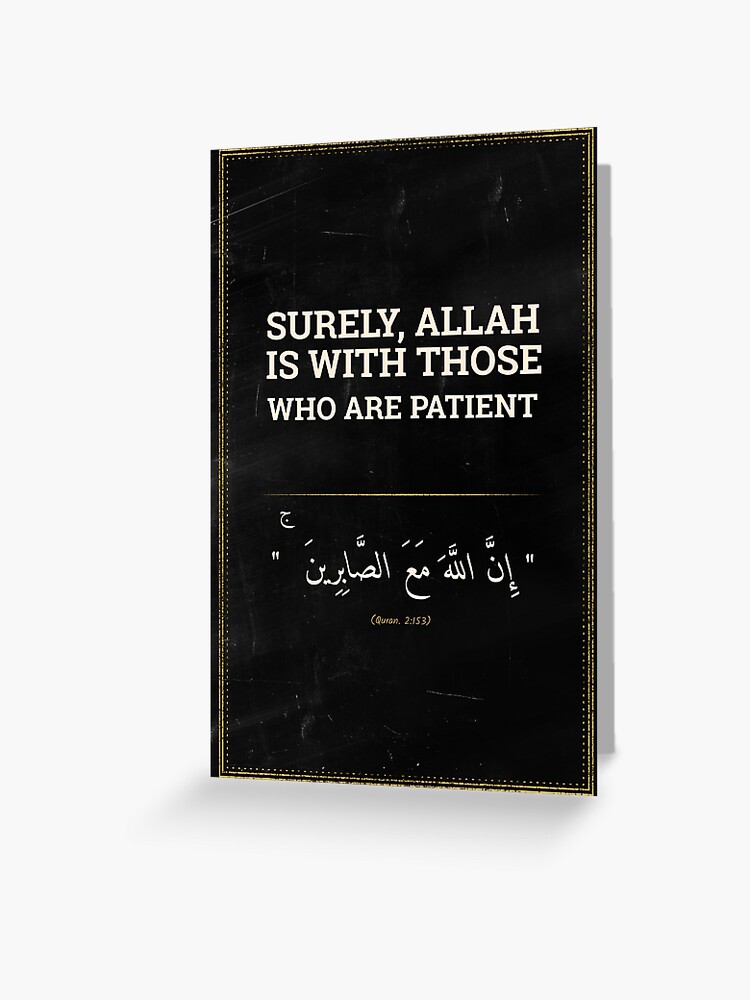 SURELY, ALLAH
IS WITH THOSE
WHO ARE PATIENT
" إِنَّ اللَّهَ مَعَ الصَّابِرِينَ ۚ "
(Quran, 2:153)